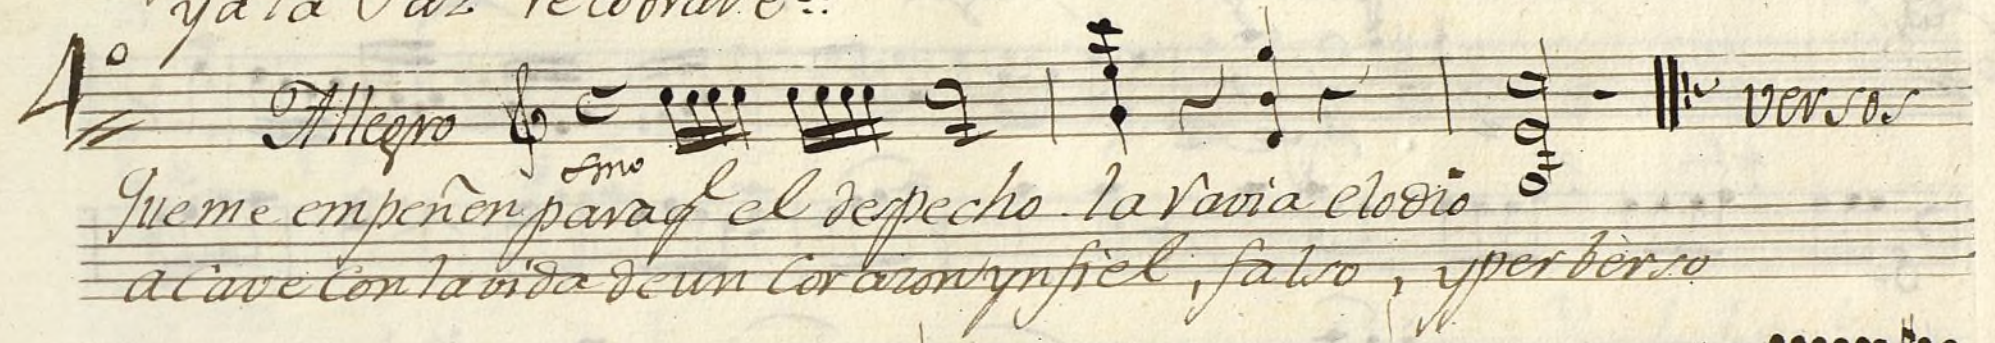 y a la Paz recobrare
4º Allegro versos
fmo
que me empeñen paraq̃ el despecho la Ravia el odio
acave con la vida de un Corazon ynfiel, falso, y perberso